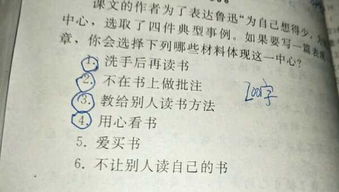 课文的作者为了表达鲁迅“为自己想得少,为
中心,选取了四件典型事例。如果要写一篇
章,你会选择下列哪些材料体现这一中心?
1. 洗手后再读书
2. 不在书上做批注
3. 教给别人读书方法
200字
4. 用心看书
5. 爱买书
6. 不让别人读自己的书